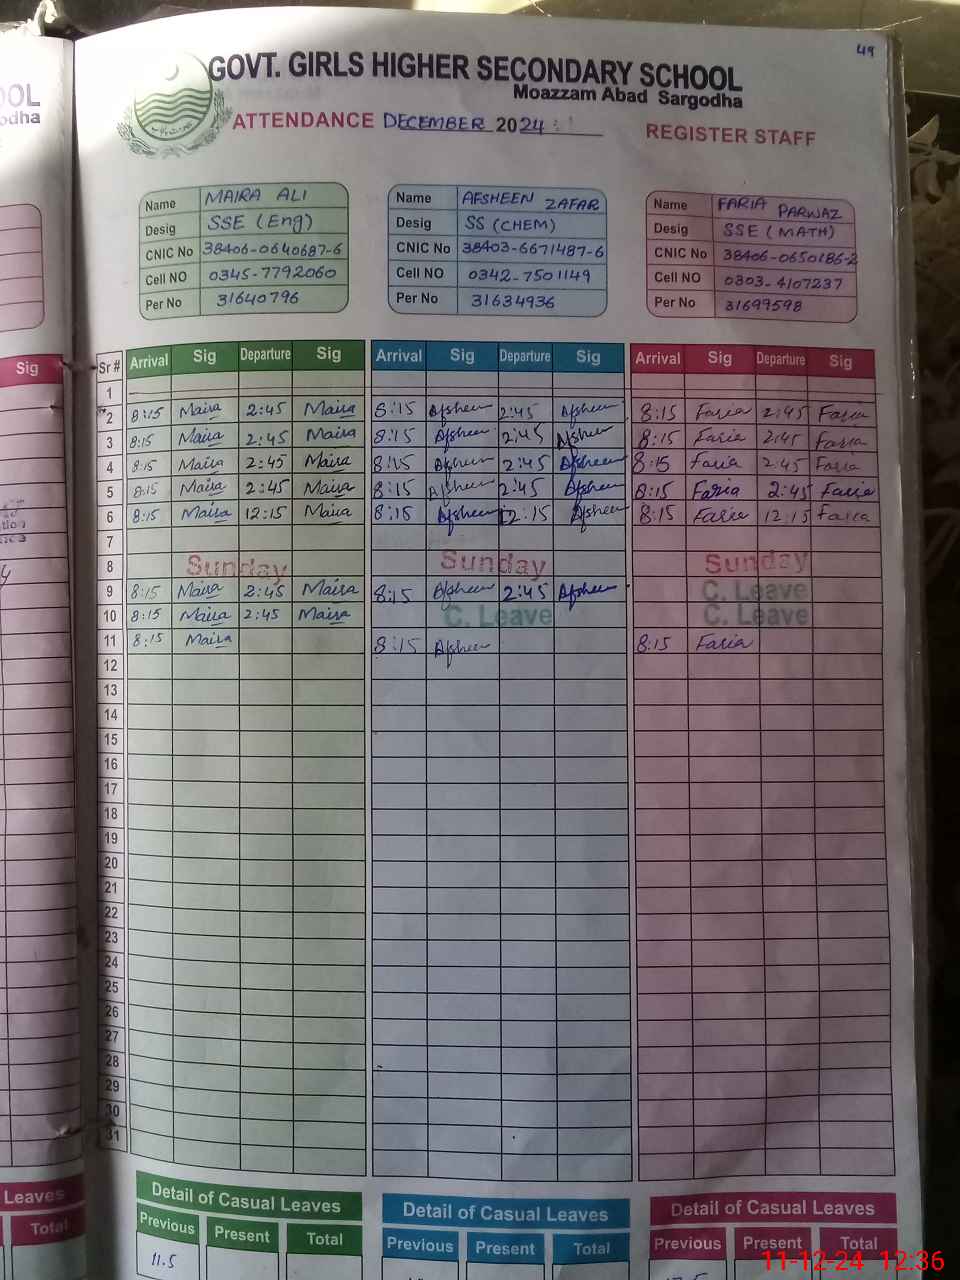 49
OOL
odha
GOVT. GIRLS HIGHER SECONDARY SCHOOL
Moazzam Abad Sargodha
ATTENDANCE DECEMBER 2024 REGISTER STAFF
Name MAIRA ALI
Desig SSE (Eng)
CNIC No 38406-0640687-6
Cell NO 0345-7792060
Per No 31640796
Name AFSHEEN ZAFAR
Desig SS (CHEM)
CNIC No 38403-6671487-6
Cell NO 0342-7501149
Per No 31634936
Name FARIA PARWAZ
Desig SSE (MATH)
CNIC No 38406-0650186-2
Cell NO 0303-4107237
Per No 31699598
Sig
Sr # Arrival Sig Departure Sig Arrival Sig Departure Sig Arrival Sig Departure Sig
1
2 8:15 Maira 2:45 Maira 8:15 Afsheen 2:45 Afsheen 8:15 Faria 2:45 Faria
3 8:15 Maira 2:45 Maira 8:15 Afsheen 2:45 Afsheen 8:15 Faria 2:45 Faria
4 8:15 Maira 2:45 Maira 8:15 Afsheen 2:45 Afsheen 8:15 Faria 2:45 Faria
5 8:15 Maira 2:45 Maira 8:15 Afsheen 2:45 Afsheen 8:15 Faria 2:45 Faria
6 8:15 Maira 12:15 Maira 8:15 Afsheen 12:15 Afsheen 8:15 Faria 12:15 Faria
7
8 Sunday Sunday Sunday
9 8:15 Maira 2:45 Maira 8:15 Afsheen 2:45 Afsheen C. Leave
10 8:15 Maira 2:45 Maira C. Leave C. Leave
11 8:15 Maira 8:15 Afsheen 8:15 Faria
12
13
14
15
16
17
18
19
20
21
22
23
24
25
26
27
28
29
30
31
Leaves
Total
Detail of Casual Leaves
Previous Present Total
11.5
Detail of Casual Leaves
Previous Present Total
Detail of Casual Leaves
Previous Present Total
11-12-24 12:36